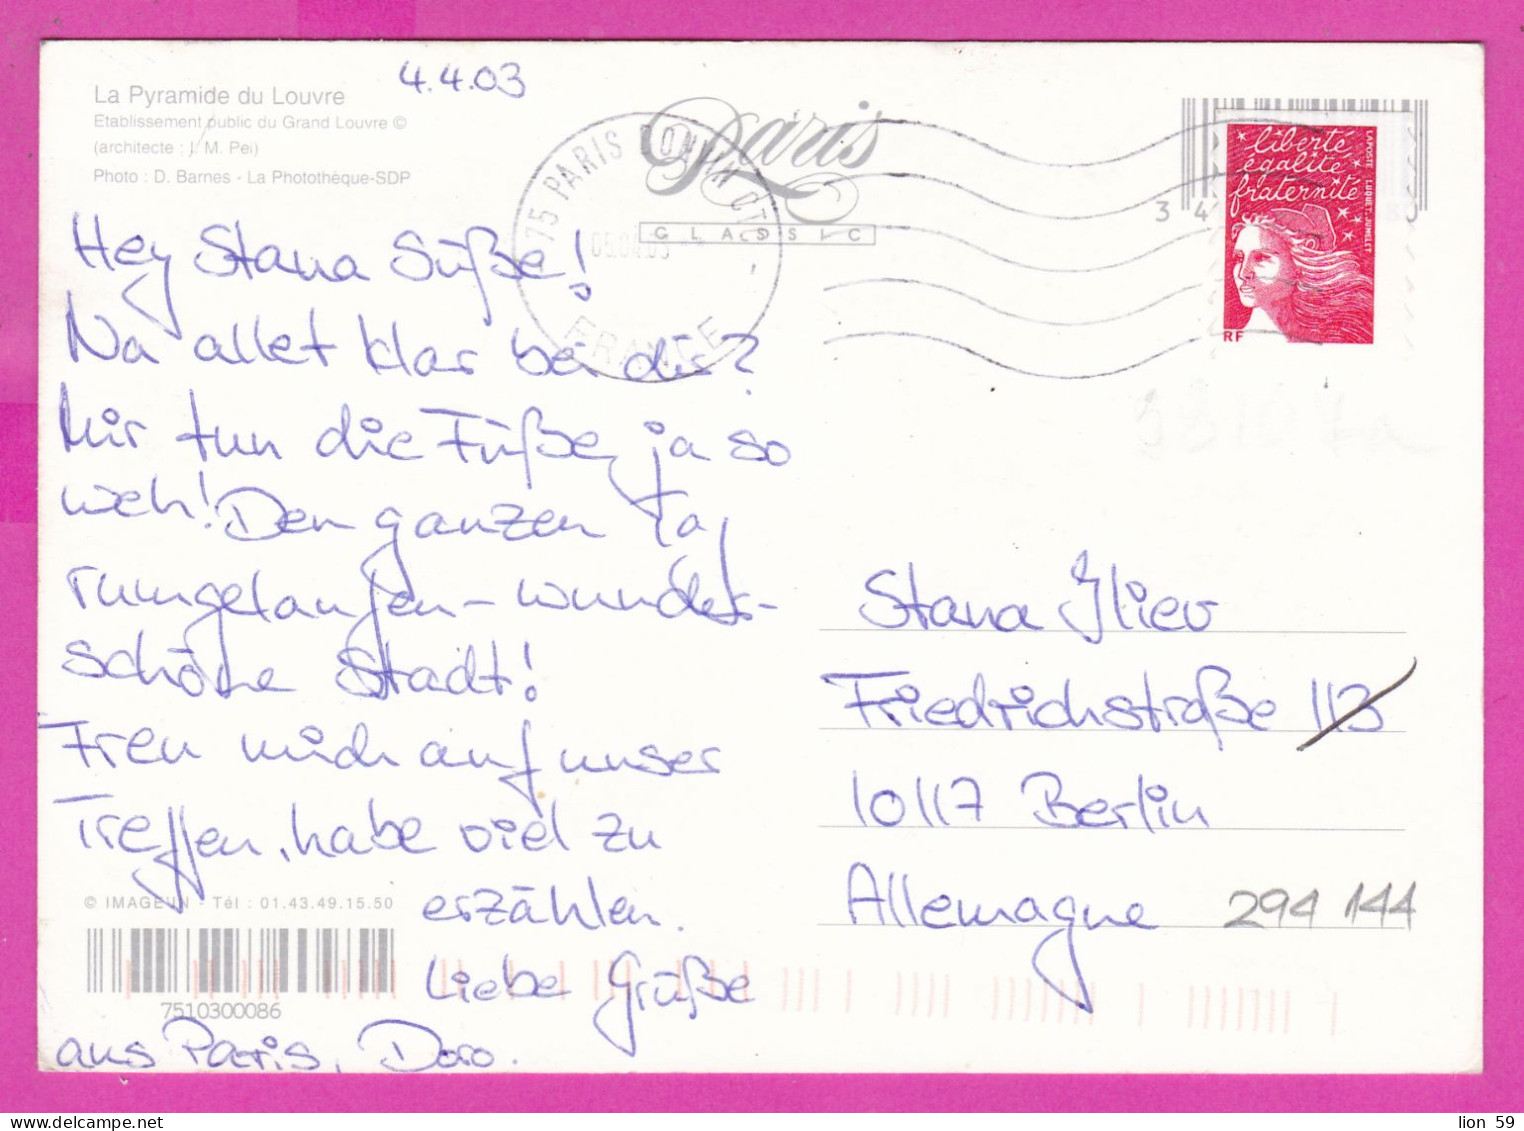 4.4.03
La Pyramide du Louvre
Etablissement public du Grand Louvre ©
(architecte : I. M. Pei)
Photo : D. Barnes - La Photothèque-SDP
Paris
CLASSIC
75 PARIS BONVIN CT
05.04.03
FRANCE
liberté
égalité
fraternité
LAPOSTE LUQUET. JUMELET
RF
3 4
Hey Stana Süße!
Na allet klar bei dir?
Mir tun die Füße ja so
weh! Den ganzen Tag
rumgelaufen - wunder-
schöne Stadt!
Freu mich auf unser
Treffen, habe viel zu
erzählen.
Liebe Grüße
aus Paris, Doro.
Stana Iliev
Friedrichstraße 113
10117 Berlin
Allemagne
294 144
© IMAGE'IN - Tél : 01.43.49.15.50
7510300086
lion 59